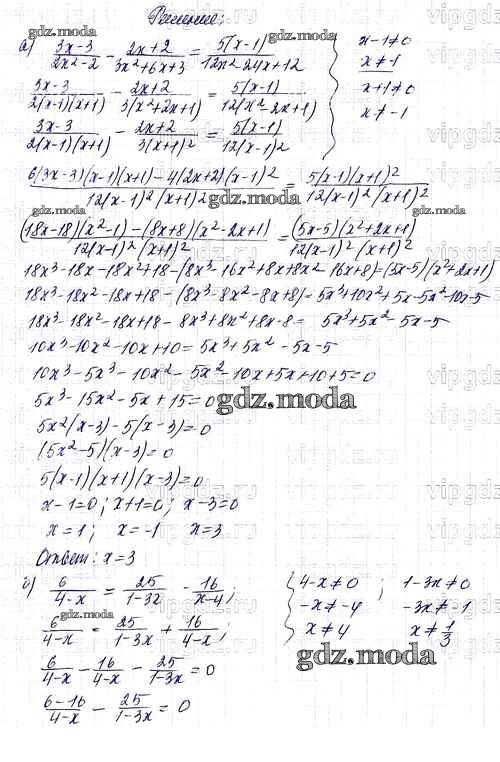 Решение:
а) (3x-3)/(2x²-2) - (2x+2)/(3x²+6x+3) = 5(x-1)/(12x²-24x+12) { x-1≠0
x≠1
(3x-3)/(2(x-1)(x+1)) - (2x+2)/(3(x²+2x+1)) = 5(x-1)/(12(x²-2x+1)) x+1≠0
x≠-1
(3x-3)/(2(x-1)(x+1)) - (2x+2)/(3(x+1)²) = 5(x-1)/(12(x-1)²)
(6(3x-3)(x-1)(x+1)-4(2x+2)(x-1)²)/(12(x-1)²(x+1)²) = 5(x-1)(x+1)²/(12(x-1)²(x+1)²)
((18x-18)(x²-1)-(8x+8)(x²-2x+1))/(12(x-1)²(x+1)²) = (5x-5)(x²+2x+1)/(12(x-1)²(x+1)²)
18x³-18x-18x²+18-(8x³-16x²+8x+8x²-16x+8)=(5x-5)(x²+2x+1)
18x³-18x²-18x+18-(8x³-8x²-8x+8)=5x³+10x²+5x-5x²-10x-5
18x³-18x²-18x+18-8x³+8x²+8x-8= 5x³+5x²-5x-5
10x³-10x²-10x+10=5x³+5x²-5x-5
10x³-5x³-10x²-5x²-10x+5x+10+5=0
5x³-15x²-5x+15=0
5x²(x-3)-5(x-3)=0
(5x²-5)(x-3)=0
5(x-1)(x+1)(x-3)=0
x-1=0; x+1=0; x-3=0
x=1; x=-1 x=3
Ответ: x=3
б) 6/(4-x) = 25/(1-3x) - 16/(x-4); { 4-x≠0 ; 1-3x≠0
-x≠-4 -3x≠-1
6/(4-x) = 25/(1-3x) + 16/(4-x); x≠4 x≠1/3
6/(4-x) - 16/(4-x) - 25/(1-3x) = 0
(6-16)/(4-x) - 25/(1-3x) = 0
gdz.moda
gdz.moda
gdz.moda
gdz.moda
gdz.moda
gdz.moda
gdz.moda
gdz.moda
vipgdz.ru